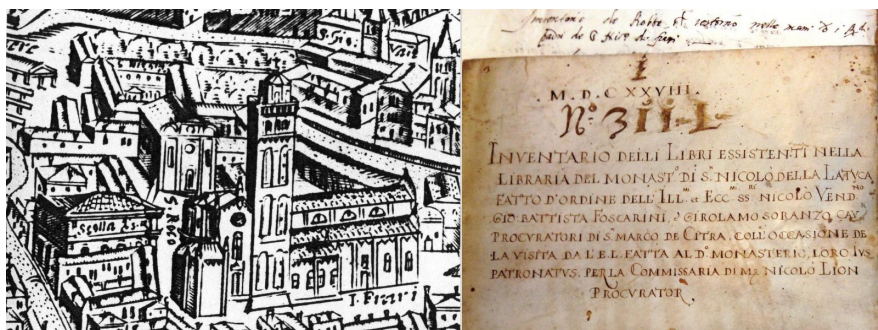 S. Gio:
Scolla
S. ROCO
I. Frari
nelle man.
1
M. D. C XXVIII.
Nº. 3II-L-
INVENTARIO DELLI LIBRI ESSISTENTI NELLA
LIBRARIA DEL MONAST.º DI S. NICOLÒ DELLA LATVCA
FATTO D'ORDINE DELL'ILL.mi et ECC.mi SS.ri NICOLÒ VEND.no
GIO: BATTISTA FOSCARINI, GIROLAMO SORANZO, CAV.ri
PROCVRATORI DI S. MARCO DE CITRA, COLL'OCCASIONE DE
LA VISITA DA L'E.L. FATTA AL D.º MONASTERIO, LORO IVS
PATRONATVS, PER LA COMMISSARIA DI M.s NICOLÒ LION
PROCVRATOR.